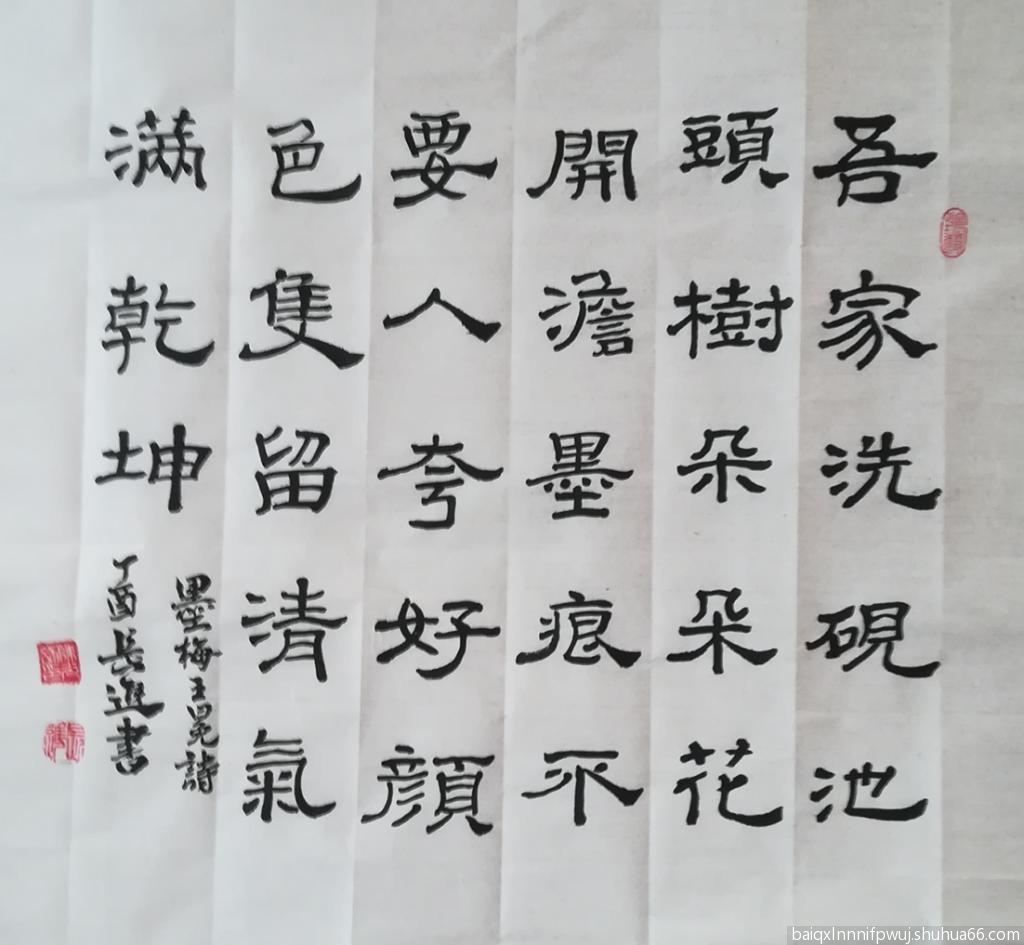 吾家洗硯池
頭樹朵朵花
開澹墨痕不
要人夸好顔
色隻留清氣
满乾坤
墨梅王冕詩
丁酉長進書
baiqxlnnnifpwuj.shuhua66.com